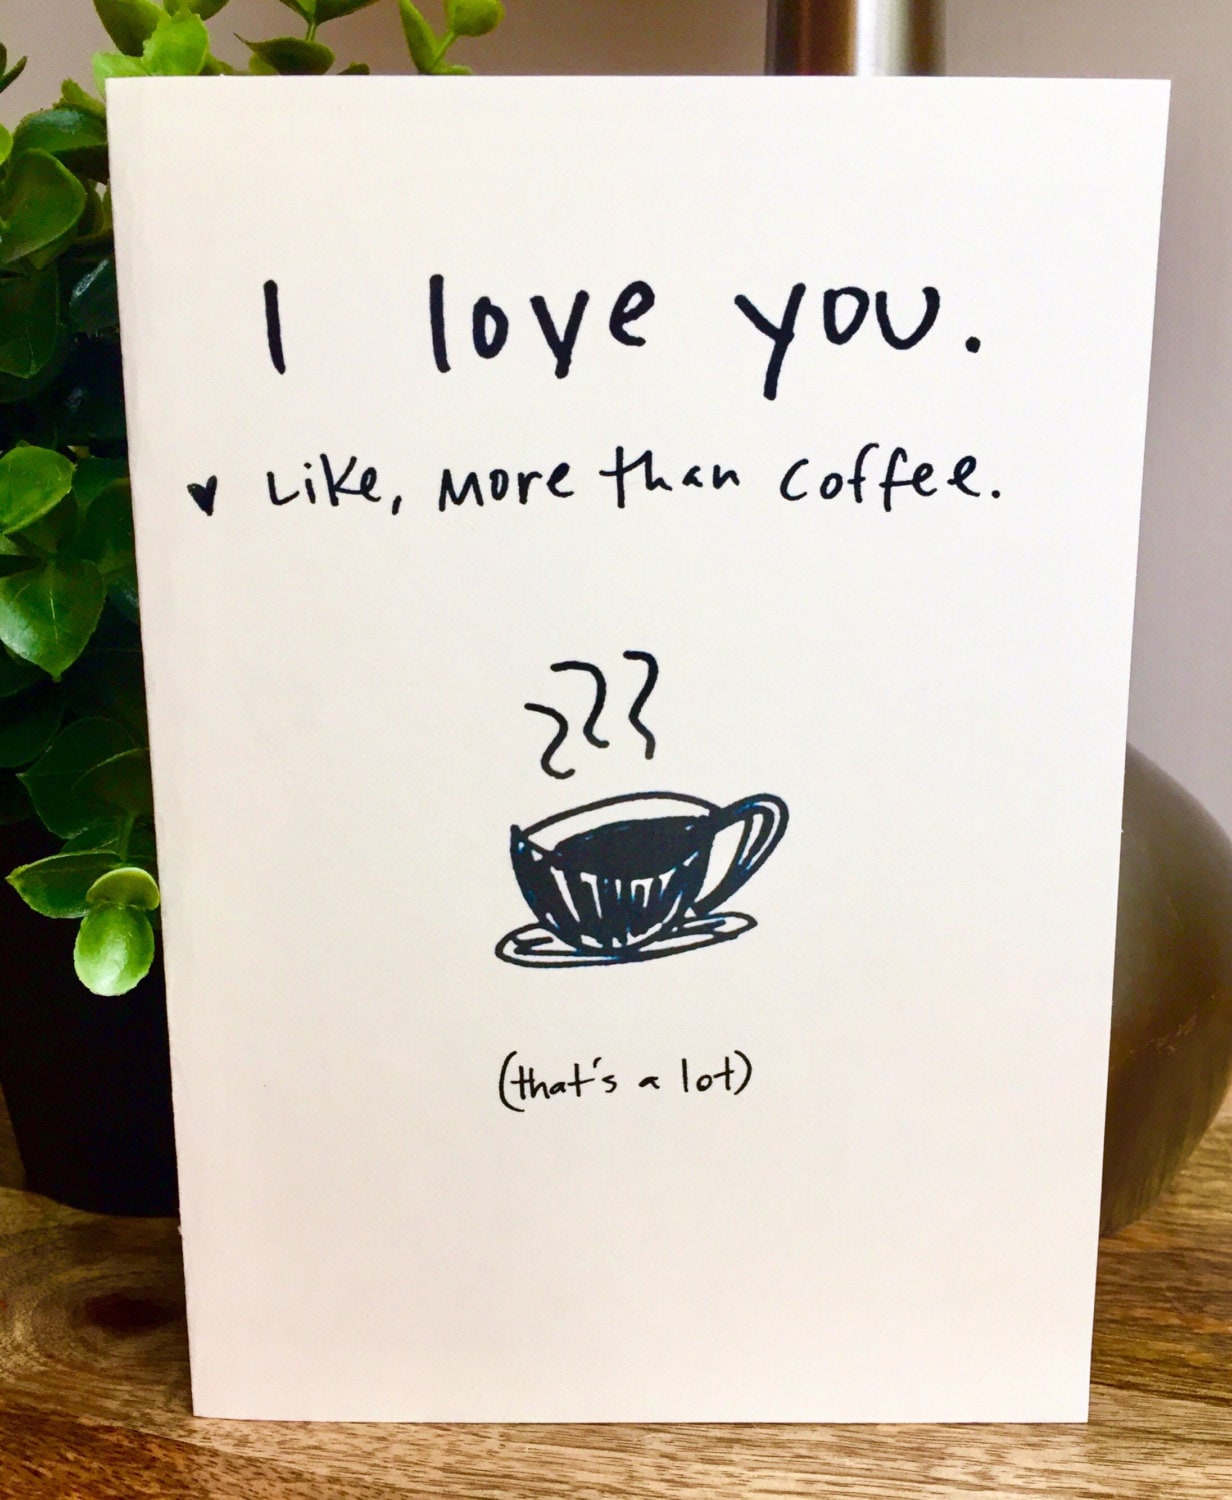 I love you.
♥ Like, more than coffee.
(that's a lot)